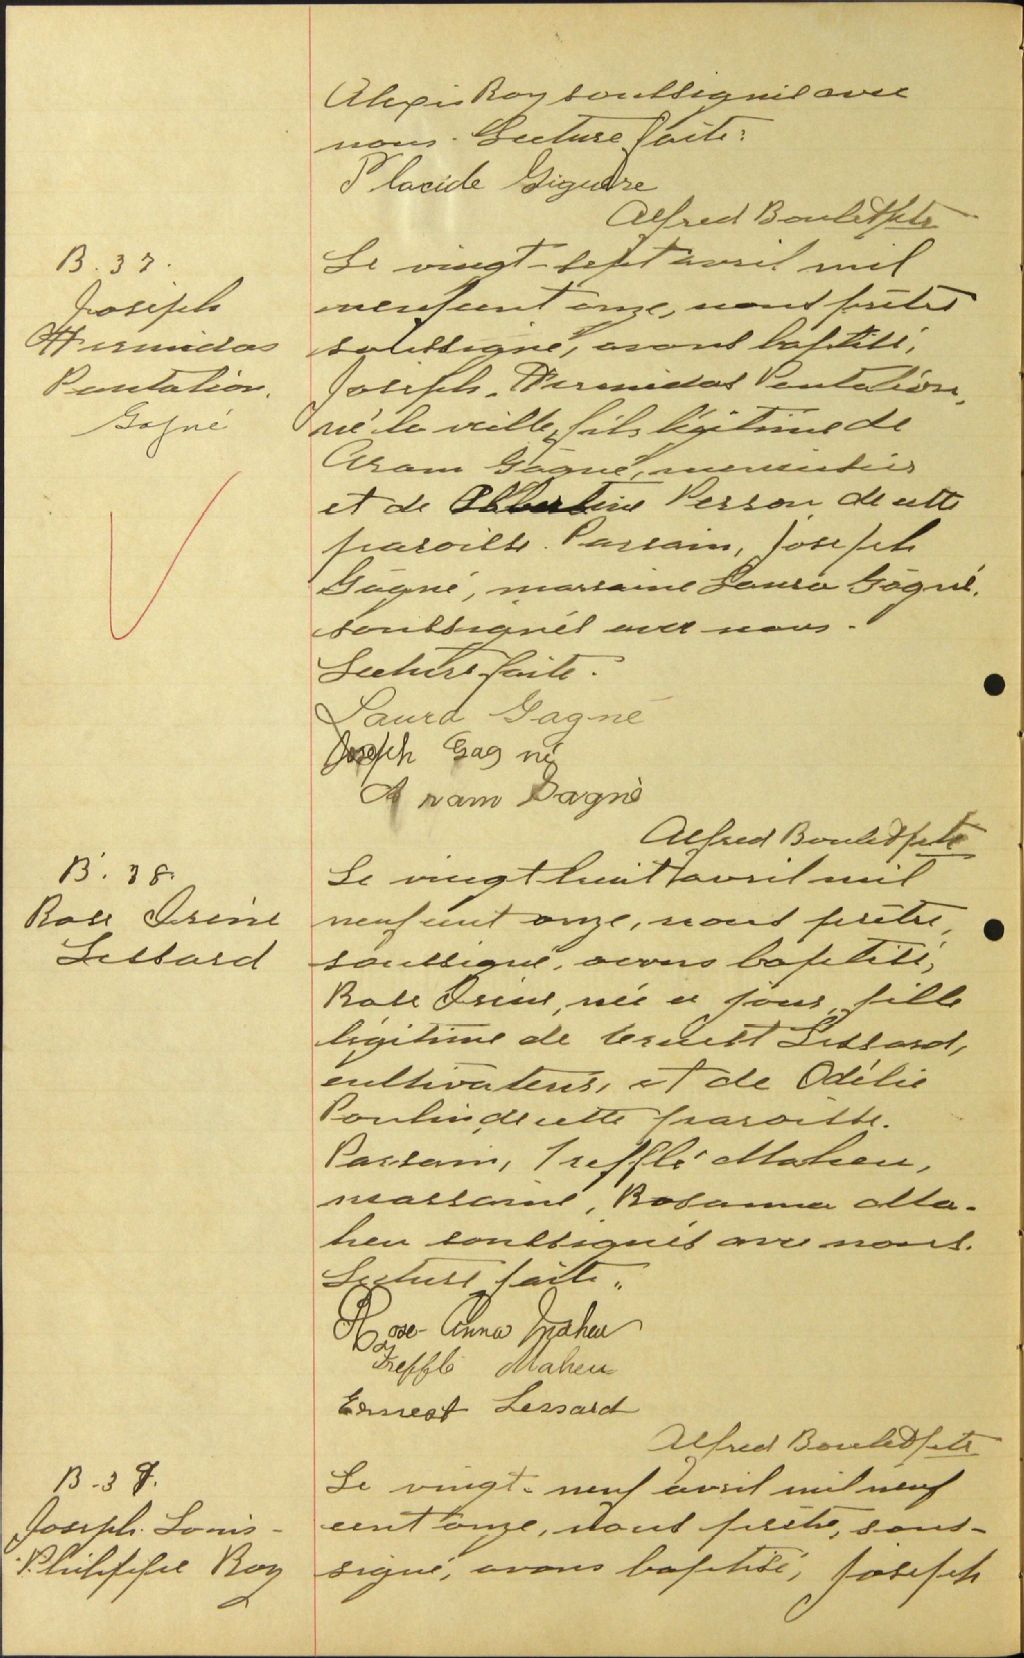 Alexis Roy soussigné avec
nous. Lecture faite.
Placide Giguère
Alfred Boulet Ptre
B. 37.
Joseph
Hermidas
Pantaléon.
Gagné
Le vingt-sept avril mil
neuf cent onze, nous prêtre
soussigné, avons baptisé,
Joseph, Hermidas Pantaléon,
né la veille, fils légitime de
Aram Gagné, menuisier
et de Albertine Perron de cette
paroisse. Parrain, Joseph
Gagné, marraine Laura Gagné.
soussignés avec nous.
Lecture faite.
Laura Gagné
Joseph Gagné
Aram Gagné
Alfred Boulet Ptre
B. 38.
Rose Irène
Lessard
Le vingt huit avril mil
neuf cent onze, nous prêtre,
soussigné, avons baptisé,
Rose Irène, née ce jour, fille
légitime de Ernest Lessard,
cultivateur, et de Odélie
Poulin, de cette paroisse.
Parrain, Trefflé Maheu,
marraine, Rosanna Ma-
heu soussignés avec nous.
Lecture faite.
Rose-Anna Maheu
Trefflé Maheu
Ernest Lessard
Alfred Boulet Ptre
B. 39.
Joseph Louis-
Philippe Roy
Le vingt-neuf avril mil neuf
cent onze, nous prêtre, sous-
signé, avons baptisé, Joseph